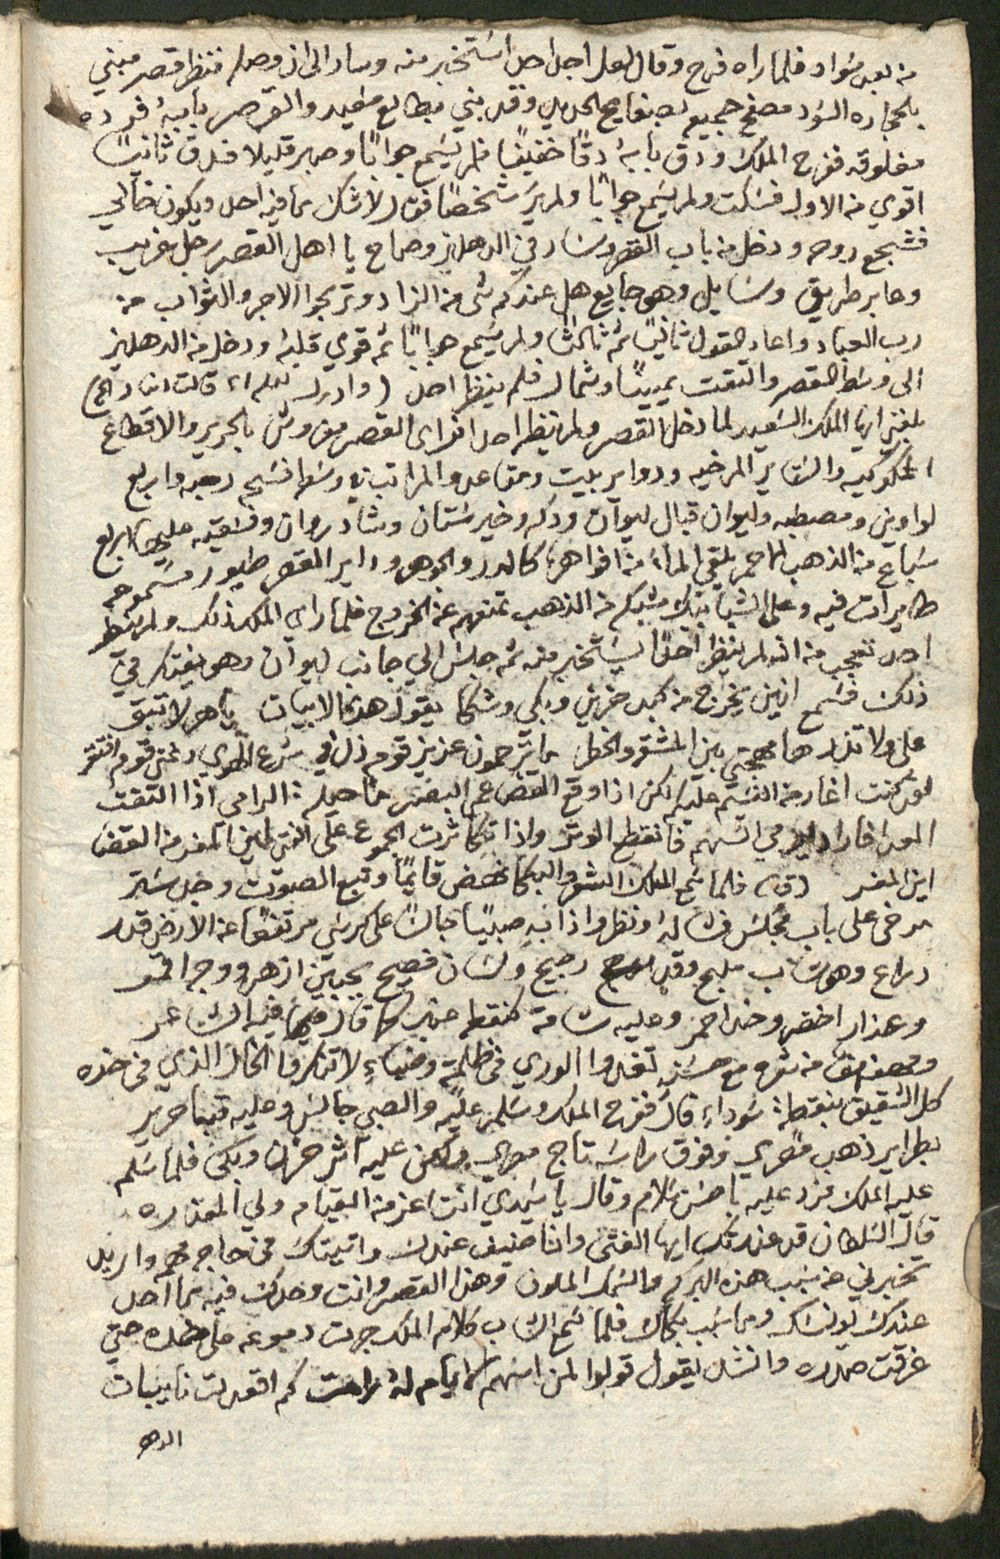 من بعد سواد فلما راه فرح وقال لعل اجد احد استخبر منه وسار الى ان وصل فنظر قصر مبني
بالحجاره السود مصفح جميعه بصفايح الحديد وقد بني بطالع سعيد والقصر بابه فرده
مغلوقه ففرح الملك ودق بابه دقا خفيفا فلم يسمع جوابا وصبر قليلا فدق ثانيا
اقوي من الاول فسكت ولم يسمع جوابا ولم ير شخصا فقال لاشك ما فيه احد ويكون خالي
فشجع روحه ودخل من باب القصر وسار في الدهليز وصاح يا اهل القصر رجل غريب
وعابر طريق وسايل وهو جايع هل عندكم شي من الزاد وتربحوا الاجر والثواب من
رب العباد واعاد القول ثانيا ثم ثالثا ولم يسمع جوابا ثم قوي قلبه ودخل من الدهليز
الى وسط القصر والتفت يمينا وشمال فلم ينظر احد (وادرك قالت
بلغني ايها الملك السعيد لما دخل القصر ولم ينظر احد افراى القصر مفروش بالحرير والاقطاع
والستاير المرخيه ودواير بيت ومقاعد والمراتب وفي وسطها فسيح رحبه واربع
لواوين ومصطبه وليوان قبال ليوان ودكه وخيرستان وشادروان وفسقيه عليها اربع
سباع من الذهب الاحمر يلقي الماء من افواهها كالدرر والجوهر وداير القصر طيور مسموعه
طايرات فيه وعلى الشبابيك شبكه من الذهب تمنعهم عن الخروج فلما راى الملك ذلك ولم ينظر
احد تعجب من انه لم ينظر احدا يستخبر منه ثم جلس الي جانب ليوان وهو يفتكر في
ذلك فسمع انين يخرج من كبد حزين وبكي وشكا يقول هذه الابيات يا دهر لا تبق
علي ولا تذر ها مهجتي بين المشقه والخطر ما ترحمون عزيز قوم ذل في شرع الهوي وغني قوم افتقر
لقد كنت اغار من النسيم عليكم لكن اذا وقع القضا عمي البصر ما حيلة الرامي اذا التقت
العدا فاراد يرمي السهم فانقطع الوتر واذا تكاثرت الجموع على الفتى اين المفر من القضا
اين المفر (قال) فلما سمع الملك الشعر والبكا نهض قايما وتبع الصوت وجد ستر
مرخى على باب مجلس فشاله ونظر واذا به صبيا جالس على كرسي مرتفع عن الارض قدر
دراع وهو شاب مليح وقد رجيح ولسان فصيح بجبين ازهر ووجه اقمر
وعذار اخضر وخد احمر وعليه شامة كنقطه عنبر كما قال فيه الشاعر
ومهفهف من شعره مع حسنه تغدوا الوري في ظلمة وضياء لا تنكروا الخال الذي في خده
كل الشقيق بنقطة سوداء قال ففرح الملك وسلم عليه والصبي جالس وعليه قبا حرير
بطراير ذهب مصري وفوق راسه تاج مصري ولكن عليه اثر حزن وبكى فلما سلم
عليه الملك فرد عليه باحسن سلام وقال يا سيدي انت اعز من القيام ولي المعذره
قال السلطان قد عذرتك ايها الفتى وانا ضيف عندك واتيتك في حاجه واريد
تخبرني عن سبب هذه البركه والسمك الملون وهذا القصر وانت وحدك فيه ما احد
عندك يونسك وما سبب بكاك فلما سمع الشاب كلام الملك جرت دموعه على خده حتى
غرقت صدره وانشد يقول قولوا لمن اسهم الايام له رامت كم اقعدت نايبات
الدهر